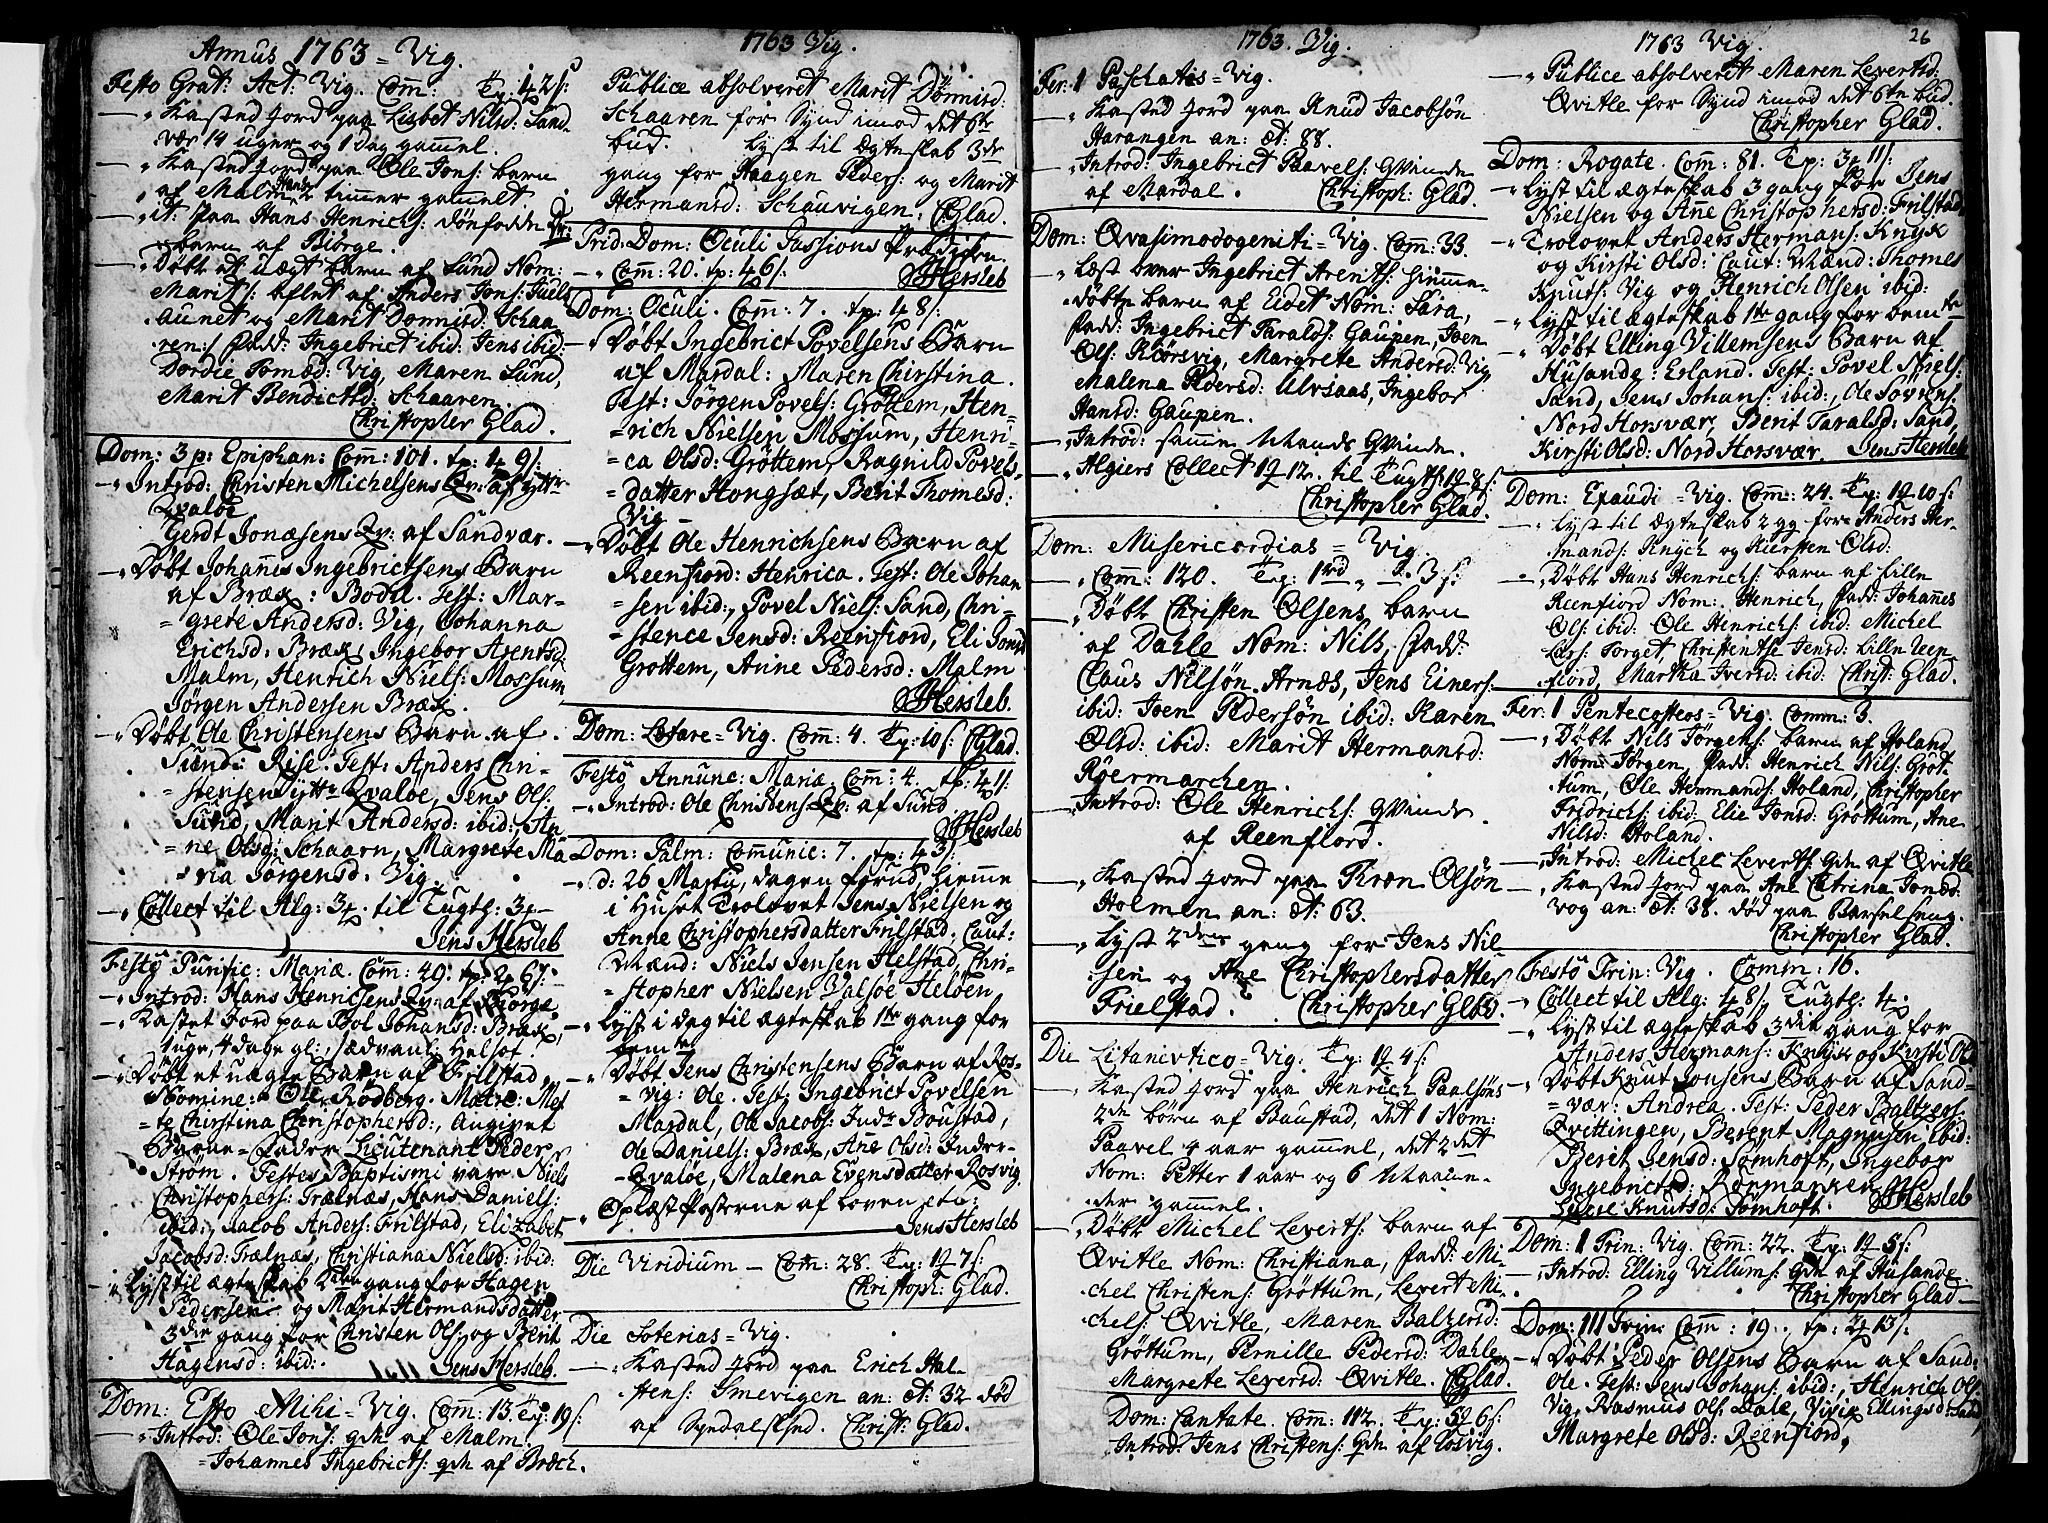 Annus 1763 = Vig.
Festo Grat: Act: Vig. Comm: Tp: 42 s:
—„ Kasted Jord paa Lisbet Nilsd: Sand-
vær 14 uger og 1 Dag gammel.
—„ Kasted Jord paa Ole Jons: barn
af Malm timmer gammelt
—„ it: paa Hans Henrichs: dönfödde
barn af Biörge.
—„ Döbt et uægt barn af Sund Nom:
Marit /: aflet af Anders Jons: Juels
aunet og Marit Dönnisd: Schaa
ren :/ fadd: Ingebrict ibid: Jens ibid:
Dordie Tomæd: Vig, Maren Sund,
Marit Bendictsd: Schaaren.
Christopher Glad.
Dom: 3 p: Epiphan: Comm: 101. tp: 1 9 s:
—„ Introd: Christen Michelsens Qv: af yttr
Qvaløe
Gerdt Jonæsens Qv: af Sandvær.
—„ Döbt Johannes Ingebrictsens Barn
af Bræk: Bodil. Test: Mar-
= grete Andersd: Vig, Johanna
Erichsd. Bræk, Ingebor Arentsd
Malm, Henrich Niels: Mossum
Jörgen Andersen Bræk.
—„ Döbt Ole Christensens Barn af
Sund: Rise. Test: Anders Chri-
= stensen Ytte Qvaløe, Jens Ols:
Sund, Marit Andersd: ibid:, An
= ne Olsd: Schaarn, Margrete Ma
= ria Jörgensd. Vig.
—„ Collect til Alg: 3 til Tugth: 3
Jens Hersleb
Festo Purific: Mariæ. Comm: 49. tp: 2 6 s:
—„ Introd: Hans Henricsens Qv: af Biörge.
—„ Kastet Jord paa Bol Johansd: Bræk,
1 uge, 4 dage gl:, sædvanl: Helsot.
—„ Döbt et uægte Barn af Frilstad,
Nomine: Ole Rödberg. Matre: Met
= te Chirstina Christophersd:, Angivet
Barne-Fader Lieutenant Peder
Ström. Testes Baptismi vare Niels
Christophers: Trælnæs, Hans Daniels:
ibid:, Jacob Anders: Frilstad, Elizabet
Jacobsd: Trælnæs, Christiana Nielsd: ibid:
—„ Lyst til ægteskab gang for Hagen
Pedersen og Marit Hermandsdatter
3die gang for Christen Ols: og Berit
Hagensd: ibid:
Jens Hersleb.
Dom: Esto Mihi = Vig. Comm: 13. Tp: 19 s:
—„ Introd: Ole Jons: qvn af Malm.
= Johannes Ingebricts: qvn af Bræch.
1763 Vig.
Publice absolveret Marit Dönnisd:
Schaaren for Synd imod det 6te
bud. Lyst til Ægteskab 3de
gang for Haagen Peders: og Marit
Hermansd: Schauvigen. CGlad.
Prid: Dom: Oculi Passions Prædiken.
—„ Comm: 20. tp: 46 s: JHersleb
Dom: Oculi. Comm: 7. tp: 1 8 s:
—„ Döbt Ingebrict Povelsens Barn
af Mardal: Maren Chirstina.
Test: Jörgen Povels: Gröttem, Hen-
= rich Nielsen Mossum, Henri-
= ca Olsd: Gröttem, Ragnild Povels
= datter Hongsæt, Berit Thomesd:
Vig
—„ Döbt Ole Henrichsens Barn af
Reenfiord: Henrica. Test: Ole Johan
= sen ibid:, Povel Niels: Sand, Chri-
= stence Jensd: Reenfiord, Eli Jonsd
Grottem, Anne Pedersd: Malm
JHersleb.
Dom: Letare = Vig. Comm: 4. Tp: 10 s: CGlad.
Festo Annunc: Mariæ. Comm: 4. tp: 1 s:
—„ Introd: Ole Christens: Qv: af Sund.
JHersleb
Dom: Palm: Communic: 7. tp: 43 s:
—„ d: 26 Martij, dagen forud, hiemme
i Huset Trolovet Jens Nielsen og
Anne Christophersdatter Frilstad. Caut:
Mænd: Niels Jensen Helstad, Chri-
= stopher Nielsen Valsöe Heløen
—„ Lyst i dag til ægteskab 1te gang for
bemte
—„ Döbt Jens Christensens Barn af Ros-
= vig: Ole. Test: Ingebrict Povelsen
Mardal, Ole Jacobs: Indr Boustad,
Ole Daniels: Bræk, Ane Olsd: Inder-
= Qvaløe, Malena Evensdatter Rosvig.
—„ Oplæst Posterne af Loven etc:
Jens Hersleb
Die Viridium — Com: 28. Tp: 12 7 s:
Christoph: Glad.
Die Soterias = Vig.
—„ Kasted Jord paa Erich Hal-
stens: Smevigen an: æt: 32 död
af Christ: Glad.
1763. Vig.
Fer: 1 Paschatis = Vig.
—„ Kasted Jord paa Knud Jacobsön
Harangen an: æt: 88.
—„ Introd: Ingebrict Paavels: Qvinde
af Mardal. Christoph: Glad.
Dom: Qvasimodogeniti = Vig. Com: 33.
—„ Læst over Ingebrict Arents: hiemme-
döbte barn af Eidet Nom: Sara,
fadd: Ingebrict Taralds: Gaupen, Joen
Ols: Kiörsvig, Margrete Andersd: Vig
Malena Pedersd: Ulvsaas, Ingebor
Hansd: Gaupen.
—„ Introd: samme Mands Qvinde.
—„ Algiers Collect 12 12. til Tugth: 12 8 s:
Christopher Glad.
Dom: Misericordias = Vig.
—„ Comm: 120. Tp: 1 rd 3 s:
—„ Döbt Christen Olsens barn
af Dahle Nom: Nils, fadd:
Claus Nilsön Arnæs, Jens Einers:
ibid: Joen Pedersön ibid: Karen
Olsd: ibid: Marit Hermansd:
Röermarchen.
—„ Introd: Ole Henrichs: Qvinde
af Reenfiord.
—„ Kasted Jord paa Kræn Olsön
Holmen an: æt: 63.
—„ Lyst 2den gang for Jens Nil-
sen og Ane Christophersdatter
Frielstad. Christopher Glad.
Die Litanevtico = Vig: Tp: 12 4 s:
—„ Kasted Jord paa Henrich Paalsöns
2de börn af Baustad, det 1 Nom:
Paavel 4 aar gammel, det 2det
Nom: Petter 1 aar og 6 Maane-
der gammel.
—„ Döbt Michel Leverts: barn af
Qvitle Nom: Christiana, fadd: Mi-
chel Christens: Gröttum, Levert Mi-
chels: Qvitle, Maren Baltzersd:
Gröttum, Pernille Pedersd: Dahle
Margrete Leversd: Qvitle. CGlad.
Dom: Cantate. Comm: 112. Tp: 52 6 s:
Introd: Jens Christens: Qvn af Rosvig.
1763 Vig.
26
—„ Publice absolveret Maren Levertsd:
Qvitle for Synd imod det 6te bud.
Christopher Glad.
Dom: Rogate. Comm: 81. Tp: 3 11 s:
—„ Lyst til ægteskab 3 gang for Jens
Nielsen og Anne Christophersd: Frilstad
—„ Trolovet Anders Hermans: Knyk
og Kirsti Olsd: Caut: Mænd: Thomes
Knuts: Vig og Henrich Olsen ibid:
—„ Lyst til ægteskab 1te gang for bemte
—„ Döbt Elling Villemsens Barn af
Husande: Erland. Test: Povel Niels:
Sand, Jens Johans: ibid:, Ole Sörens:
Nord Horsvær, Berit Taralsd: Sand,
Kirsti Olsd: Nord Horsvær. Jens Hersleb
Dom: Exaudi = Vig. Comm: 24. Tp: 12 10 s:
—„ Lyst til Ægteskab 2 gg for Anders Her-
mands: Knych og Kiersten Olsd:
—„ Döbt Hans Henrichs: barn af Lille
Reenfiord Nom: Henrich, fadd: Johannes
Ols: ibid: Ole Hinrichs: ibid: Michel
Lars: Torget, Christentse Jensd: Lille Reen
fiord, Martha Iversd: ibid: Christ: Glad.
Fer: 1 Pentecosteos = Vig. Comm: 3.
—„ Döbt Nils Jörgens: barn af Holand
Nom: Jörgen, fadd: Henrich Nils: Gröt
tum, Ole Hermands: Holand, Christopher
Fridrichs: ibid: Elie Jonsd: Gröttum, Ane
Nilsd: Holand.
—„ Introd: Michel Leverts: Qvn af Qvitle
—„ Kasted Jord paa Ane Catrina Jonsd:
Vog an: æt: 38. död paa Barselseng.
Christopher Glad.
Festo Trin: Vig. Comm: 16.
—„ Collect til Alg: 1 8 s, Tugth: 1
—„ Lyst til ægteskab 3die gang for
Anders Hermans: Knyk og Kirsti Ols
—„ Döbt Knut Jonsens Barn af Sand-
= vær: Andrea. Test: Peder Baltzers:
Qvittingen, Berent Magnusen ibid:
Berit Jensd: Sömhoft, Ingebor
Ingebrictsd: Rörmarken
Knutsd: Sömhoft. JHersleb
Dom: 1 Trin: Vig: Comm: 22. Tp: 12 5 s:
—„ Introd: Elling Villums: Qvn af Husande.
Christopher Glad
Dom: III Trin: Comm: 19. tp: 2 13 s:
—„ Döbt Peder Olsens Barn af Sand:
Ole. Test: Jens Johans: ibid:, Henrich Ols:
Vig, Rasmus Ols: Dale, Ellingsd: Sand
Margrete Olsd: Reenfiord.